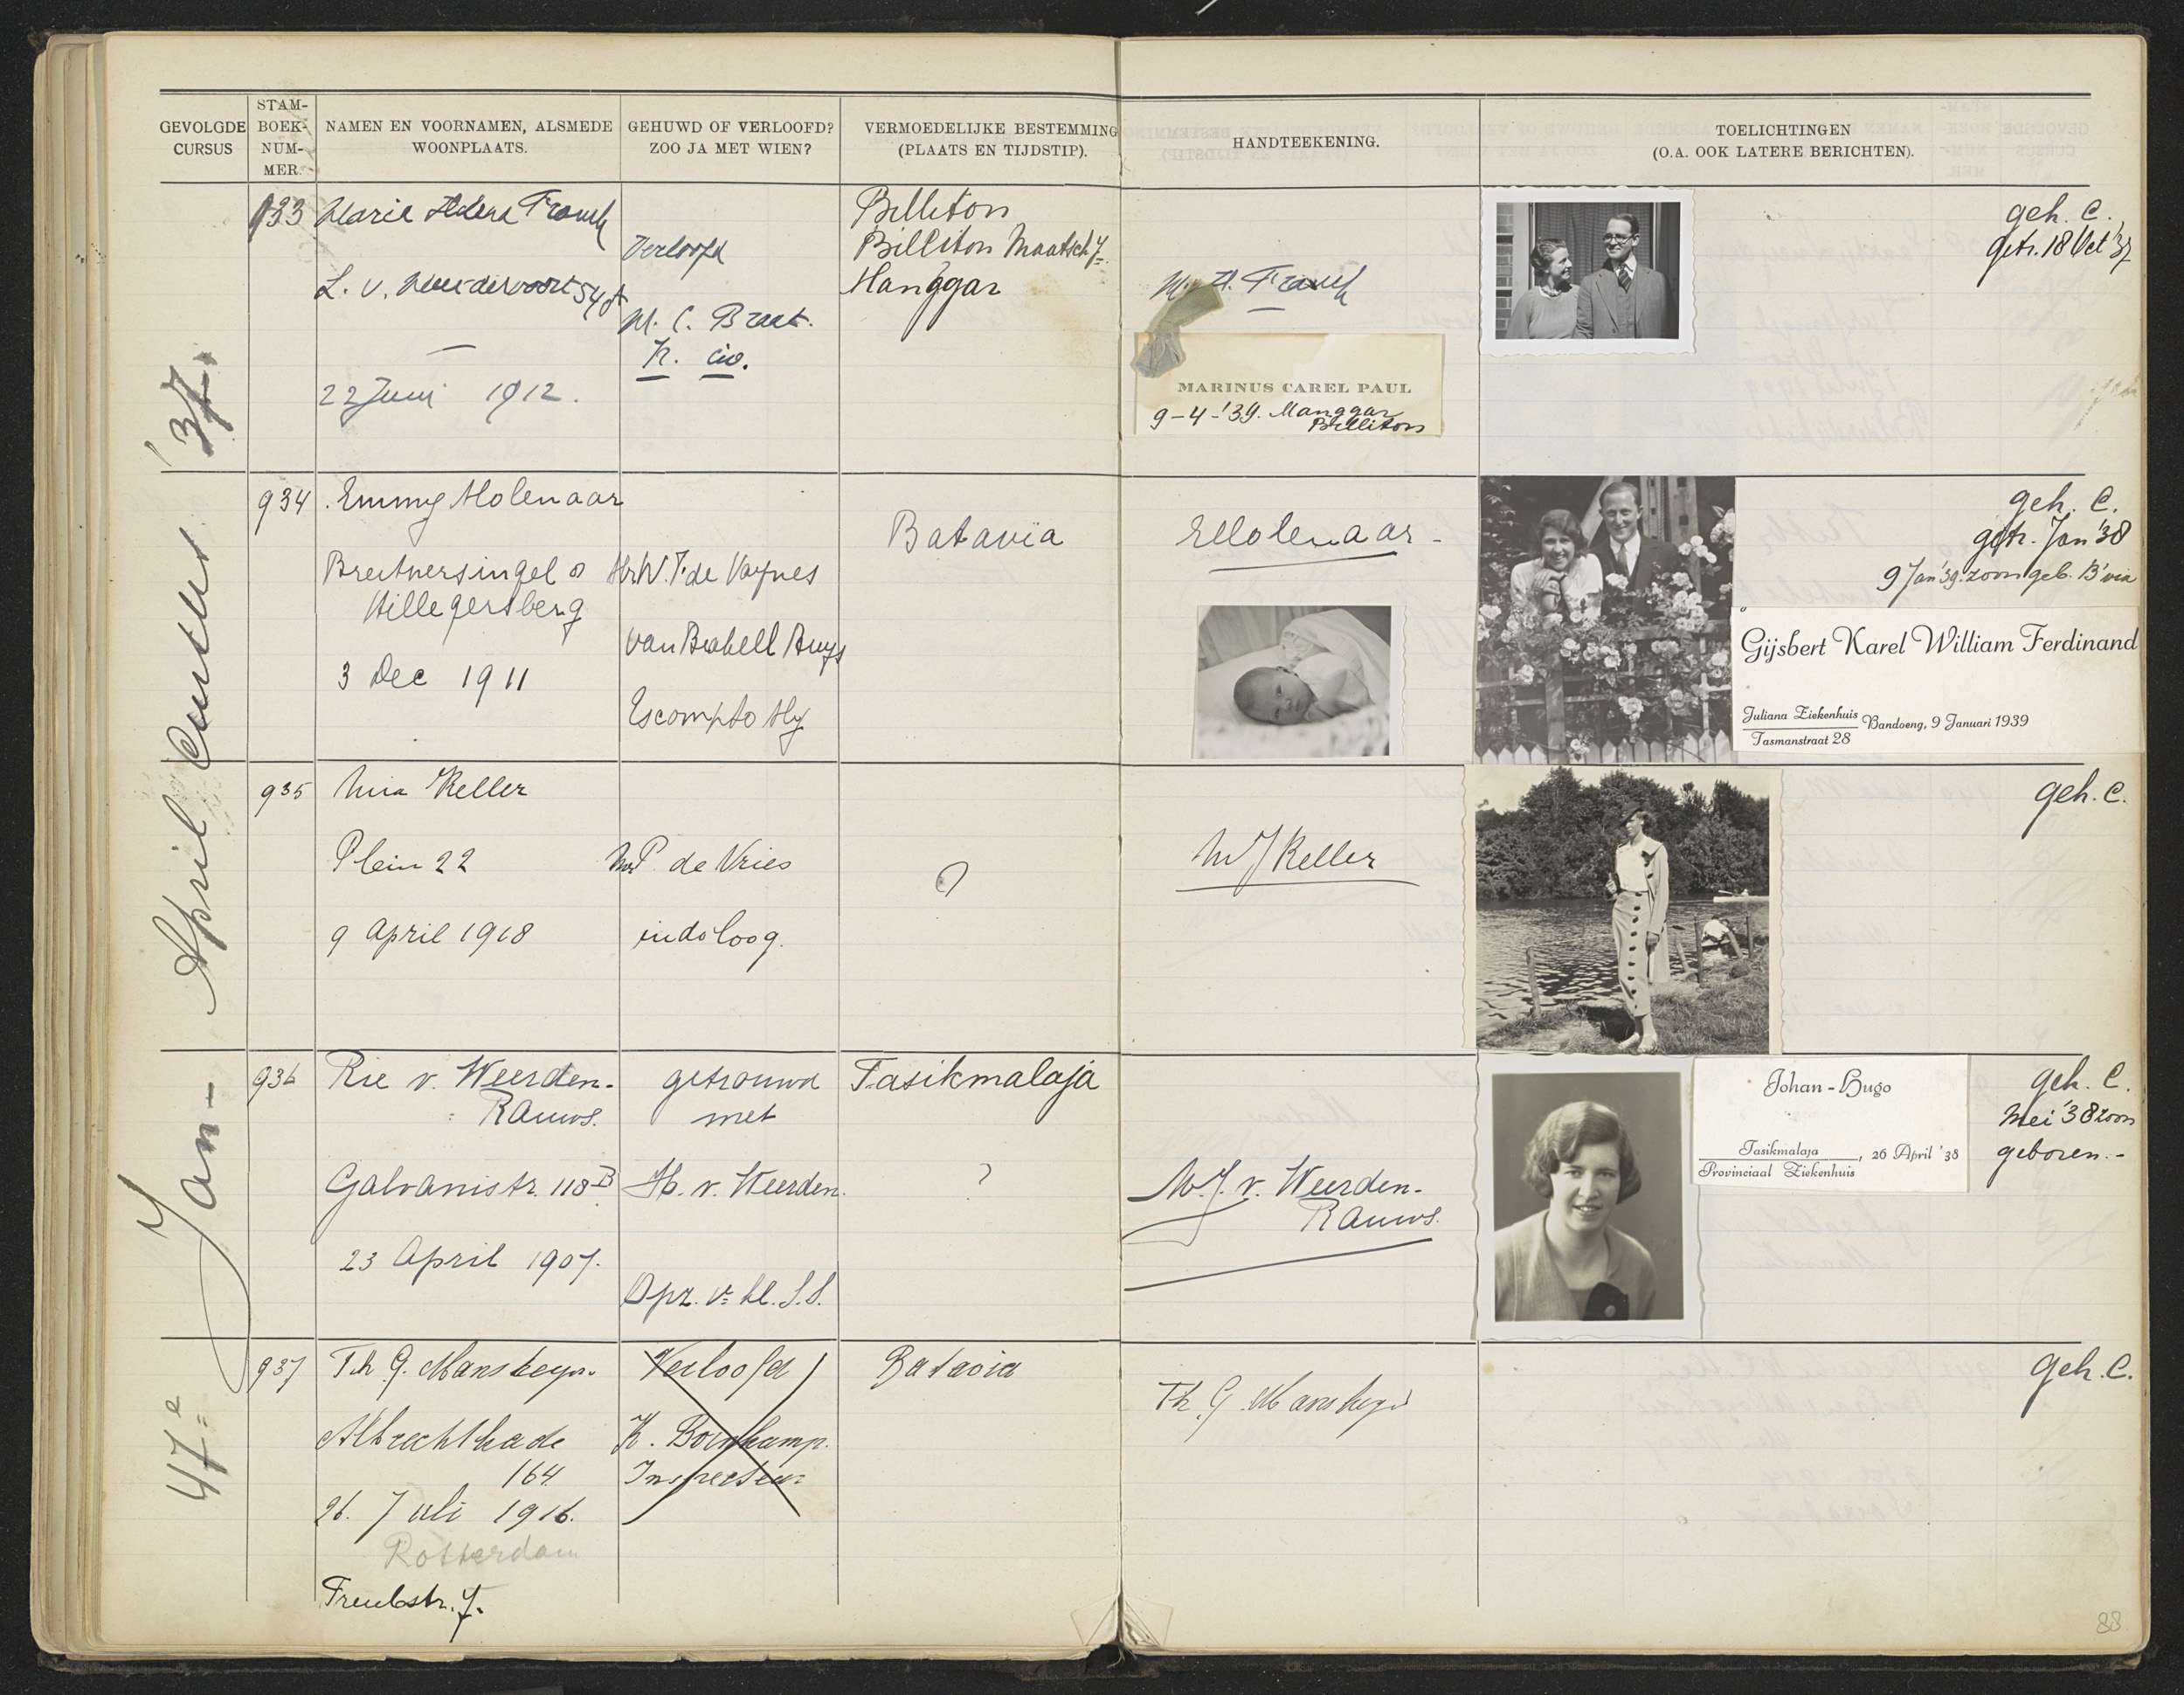 GEVOLGDE CURSUS
STAM-BOEK-NUM-MER.
NAMEN EN VOORNAMEN, ALSMEDE WOONPLAATS.
GEHUWD OF VERLOOFD? ZOO JA MET WIEN?
VERMOEDELIJKE BESTEMMING (PLAATS EN TIJDSTIP).
HANDTEEKENING.
TOELICHTINGEN
(O.A. OOK LATERE BERICHTEN).
47e Jan - April Cursus '37.
933
Marie Helena
L. v.
22 Juni 1912.
Verloofd
M. C. Braat.
Billiton
Billiton Maatschy.
Manggar
MARINUS CAREL PAUL
9-4-'39. Manggar
Billiton
geh. C.
getr. 18 Oct '37
934
Emmy Molenaar
Breitnersingel
Hillegersberg
3 Dec 1911
van Brakell Buys
Escompto My
Batavia
EMolenaar -
geh. C.
getr. Jan '38
9 Jan '39. zoon geb. B'via
Gijsbert Karel William Ferdinand
Juliana Ziekenhuis
Tasmanstraat 28
Bandoeng, 9 Januari 1939
935
Mia Keller
Plein 22
9 April 1918
P. de Vries
indoloog.
?
M J Keller
geh. C.
936
Rie v. Weerden-
Rauws.
Galvanistr. 118 B
23 April 1907.
getrouwd
met
H. v. Weerden.
Opz. v. d. S.S.
Tasikmalaja
?
M. J. v. Weerden-
Rauws.
Johan-Hugo
Tasikmalaja
Provinciaal Ziekenhuis
, 26 April '38
geh. C.
Mei '38 zoon
geboren.-
937
Th. G.
Albrechtkade
164
26. Juli 1916.
Rotterdam
Treubstr. 7.
Verloofd
K.
Inspecteur
Batavia
Th. G.
geh. C.
88